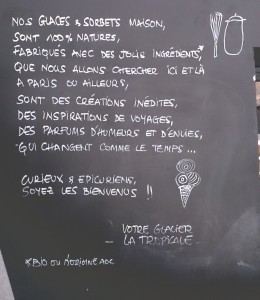 NOS GLACES & SORBETS MAISON,
SONT 100% NATURES,
FABRIQUÉS AVEC DES JOLIS INGRÉDIENTS,*
QUE NOUS ALLONS CHERCHER ICI ET LÀ
A PARIS OU AILLEURS,
SONT DES CRÉATIONS INÉDITES,
DES INSPIRATIONS DE VOYAGES,
DES PARFUMS D'HUMEURS ET D'ENVIES,
QUI CHANGENT COMME LE TEMPS ...
CURIEUX & EPICURIENS,
SOYEZ LES BIENVENUS !!
VOTRE GLACIER
- LA TROPICALE -
*BIO OU D'ORIGINE AOC